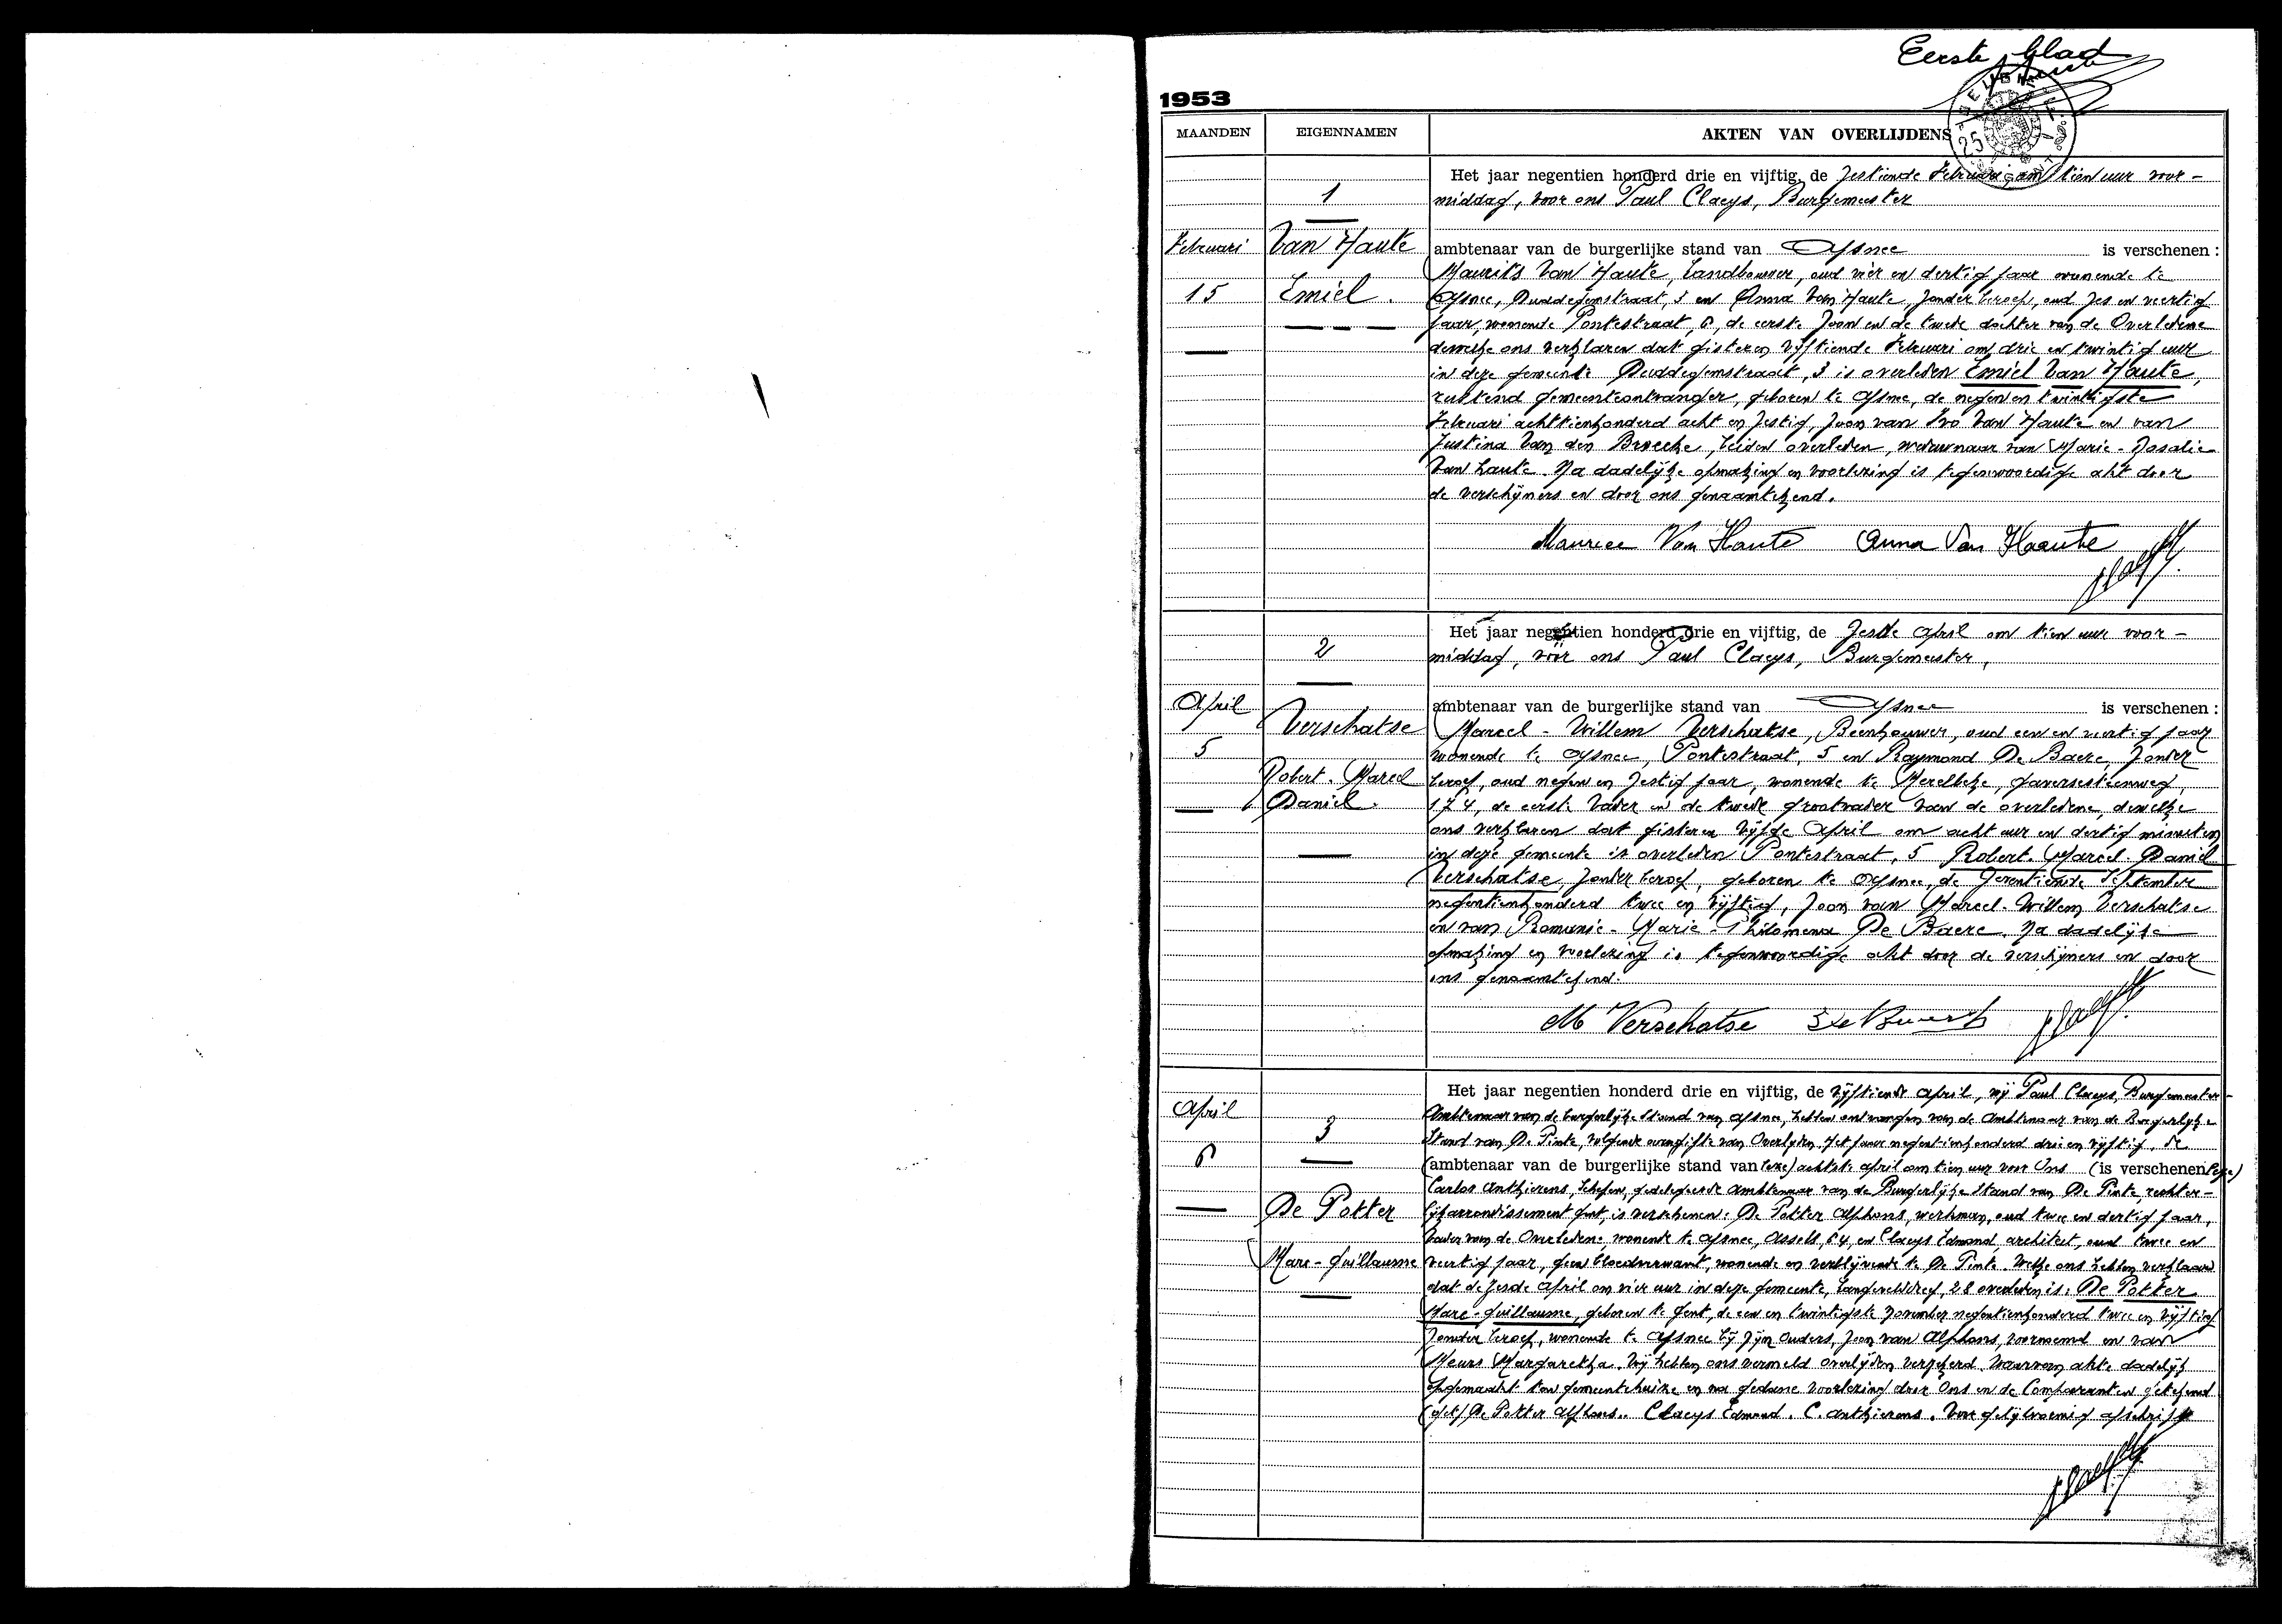 Eerste blad
1953
MAANDEN EIGENNAMEN AKTEN VAN OVERLIJDENS
Het jaar negentien honderd drie en vijftig, de zestiende Februari om tien uur voor-
1
middag, voor ons Paul Claeys, Burgemeester
Februari Van Haute ambtenaar van de burgerlijke stand van Afsnee is verschenen :
Maurits Van Haute, Landbouwer, oud vier en dertig jaar wonende te
15 Emiel. Afsnee, Duddegemstraat, 3 en Anna Van Haute, zonder beroep, oud zes en veertig
jaar, wonende Pontestraat, 6, de eerste zoon en de tweede dochter van de Overledene
dewelke ons verklaren dat gisteren vijftiende Februari om drie en twintig uur
in deze gemeente Duddegemstraat, 3 is overleden Emiel Van Haute,
rustend gemeenteontvanger, geboren te Afsnee, de negen en twintigste
Februari achttienhonderd acht en zestig, zoon van Ivo Van Haute en van
Justina Van den Broecke, beiden overleden, weduwnaar van Marie-Rosalie
Van Haute. Na dadelijke opmaking en voorlezing is tegenwoordige akt door
de verschijners en door ons genaamtekend.
Maurice Van Haute Anna Van Haute
Het jaar negentien honderd drie en vijftig, de zesde April om tien uur voor-
2
middag, voor ons Paul Claeys, Burgemeester,
April ambtenaar van de burgerlijke stand van Afsnee is verschenen :
Verschatse Marcel-Willem Verschatse, Beenhouwer, oud een en veertig jaar
5 wonende te Afsnee, Pontestraat, 5 en Raymond De Baere, zonder
Robert-Marcel beroep, oud negen en zestig jaar, wonende te Merelbeke, Gaversesteenweg,
Daniel. 174, de eerste Vader en de tweede grootvader van de overledene, dewelke
ons verklaren dat gisteren vijfde April om acht uur en dertig minuten
in deze gemeente is overleden Pontestraat, 5 Robert-Marcel-Daniel
Verschatse, zonder beroep, geboren te Afsnee, de zeventiende September
negentienhonderd twee en vijftig, zoon van Marcel-Willem Verschatse
en van Romanie-Marie-Philomena De Baere. Na dadelijke
opmaking en voorlezing is tegenwoordige akt door de verschijners en door
ons genaamtekend.
M Verschatse
Het jaar negentien honderd drie en vijftig, de vijftiende April, wij Paul Claeys, Burgemeester-
April Ambtenaar van de burgerlijke Stand van Afsnee, hebben ontvangen van de Ambtenaar van de Burgerlijke
3 Stand van De Pinte, volgende overgifte van Overlijden. Het jaar negentienhonderd drie en vijftig, de
6 (ambtenaar van de burgerlijke stand van achtste April om tien uur voor Ons (is verschenen
Carlos Anthierens, Schepen, gedelegeerde Ambtenaar van de Burgerlijke Stand van De Pinte, rechter-
De Potter lijk arrondissement Gent, is verschenen: De Potter Alphons, werkman, oud twee en dertig jaar,
Vader van de Overledene, wonende te Afsnee, Assels, 64, en Claeys Edmond, architect, oud twee en
Marc-Guillaume veertig jaar, geen bloedverwant, wonende en verblijvende te De Pinte. Welke ons hebben verklaard
dat de zesde April om vier uur in deze gemeente, 28 overleden is: De Potter
Marc-Guillaume, geboren te Gent, de een en twintigste November negentienhonderd twee en vijftig
zonder beroep, wonende te Afsnee bij zijn Ouders, zoon van Alphons, voornoemd en van
Meurs Margaretha. Wij hebben ons vermeld overlijden verzekerd. Waarvan akte dadelijk
opgemaakt ten gemeentehuize en na gedane voorlezing door Ons en de Comparanten getekend
(get.) De Potter Alfons. Claeys Edmond. C. Anthierens. Voor gelijkvormig afschrift